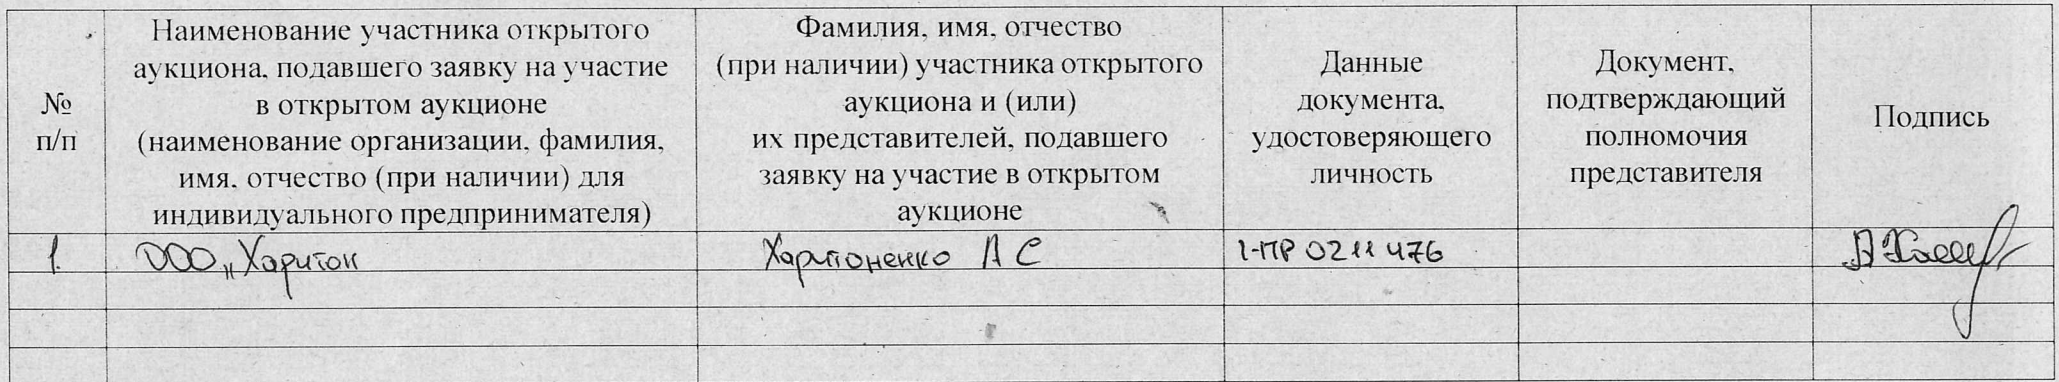 №
п/п
Наименование участника открытого
аукциона, подавшего заявку на участие
в открытом аукционе
(наименование организации, фамилия,
имя, отчество (при наличии) для
индивидуального предпринимателя)
Фамилия, имя, отчество
(при наличии) участника открытого
аукциона и (или)
их представителей, подавшего
заявку на участие в открытом
аукционе
Данные
документа,
удостоверяющего
личность
Документ,
подтверждающий
полномочия
представителя
Подпись
1. ООО „Харитон Харитоненко А С 1-ПР 0211 476